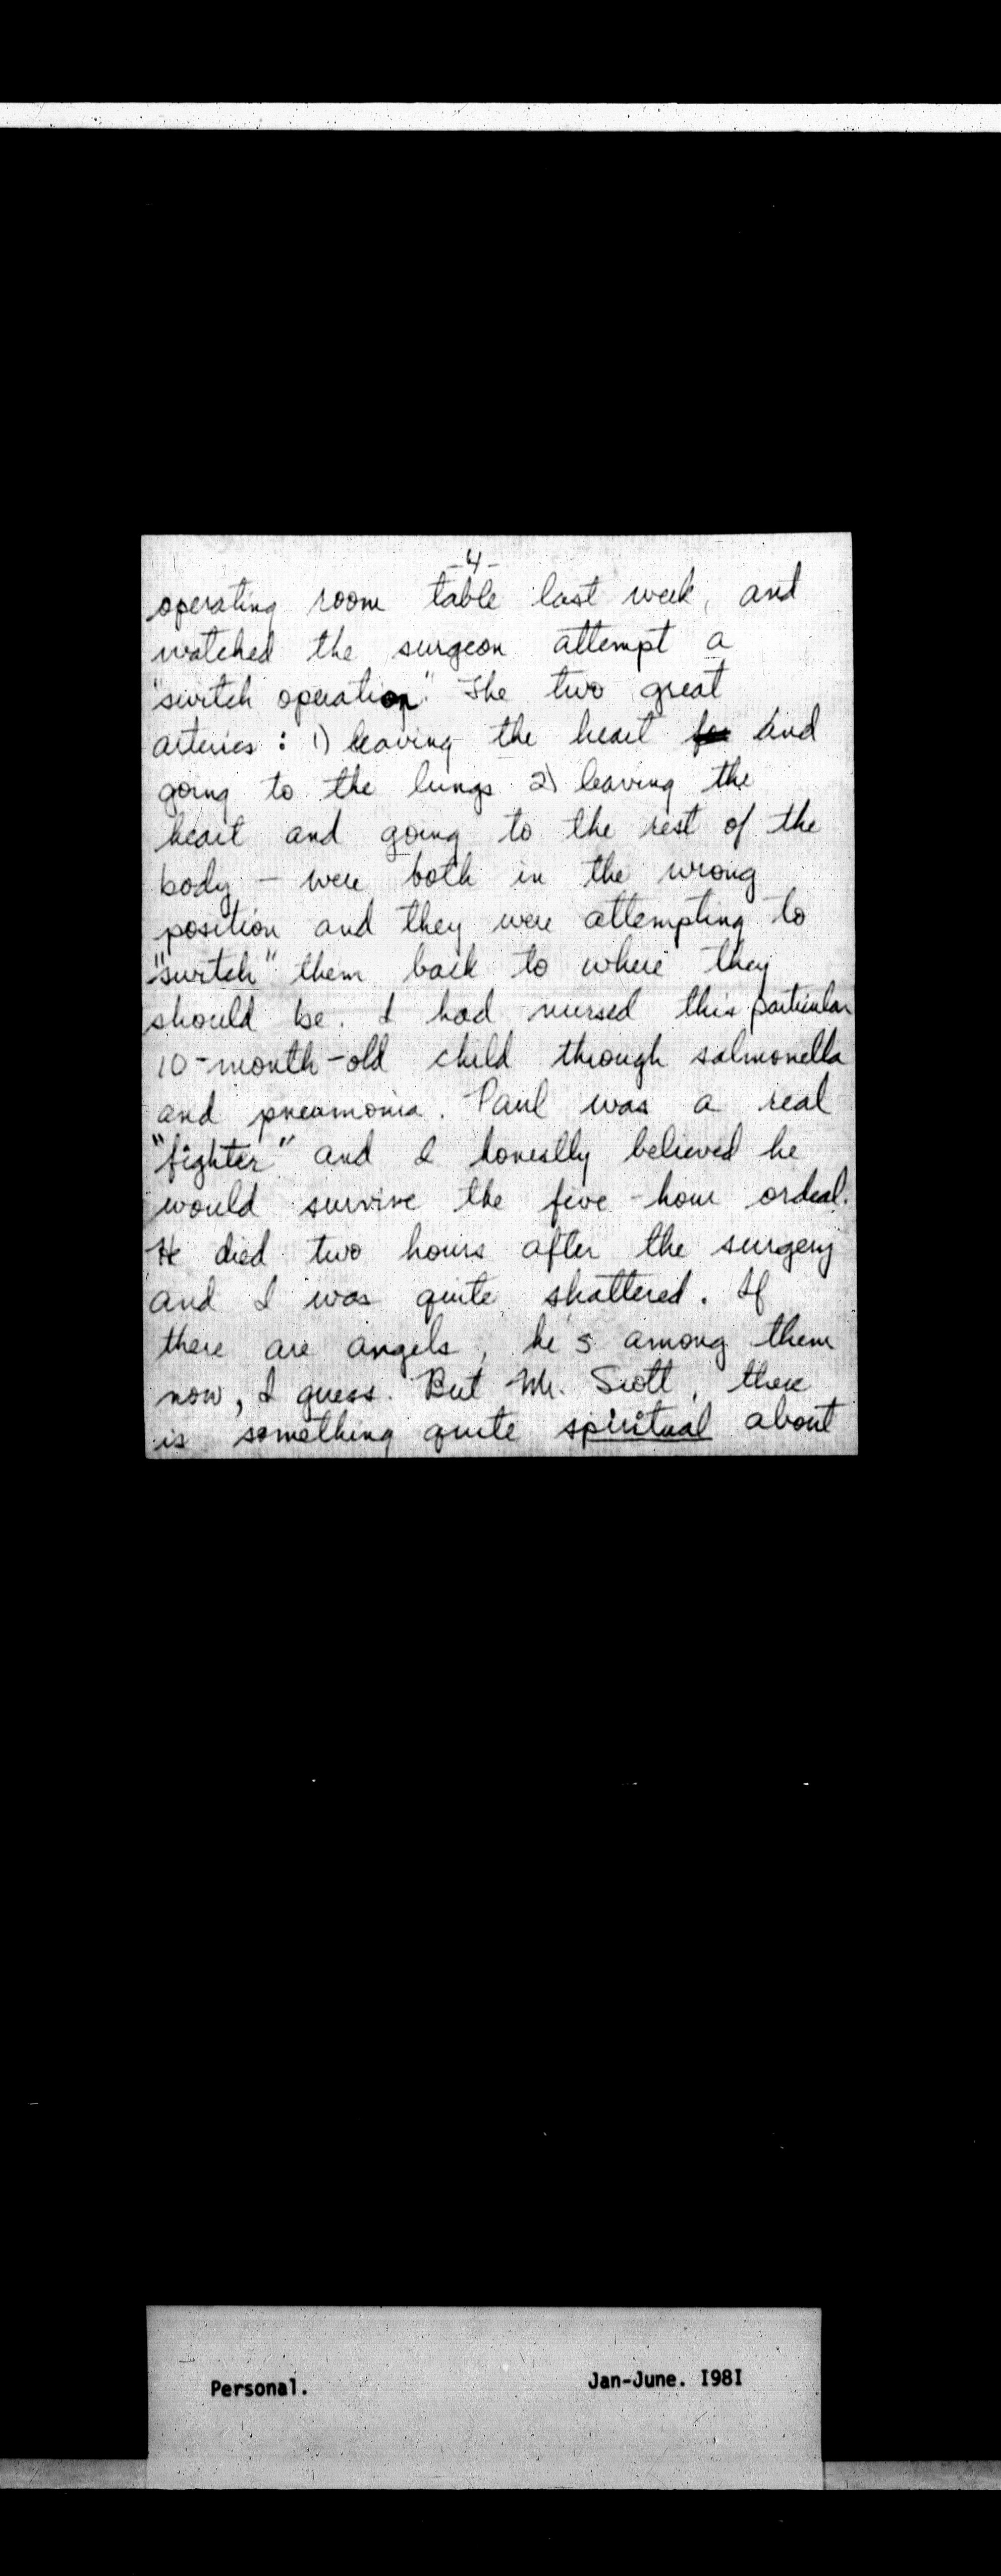 -4-
operating room table last week, and
watched the surgeon attempt a
"switch operation." The two great
arteries : 1) leaving the heart and
going to the lungs 2) leaving the
heart and going to the rest of the
body - were both in the wrong
position and they were attempting to
"switch" them back to where they
should be. I had nursed this particular
10-month-old child through salmonella
and pneumonia. Paul was a real
"fighter" and I honestly believed he
would survive the five-hour ordeal.
He died two hours after the surgery
and I was quite shattered. If
there are angels, he's among them
now, I guess. But Mr. Scott, there
is something quite spiritual about
Personal. Jan-June. I98I